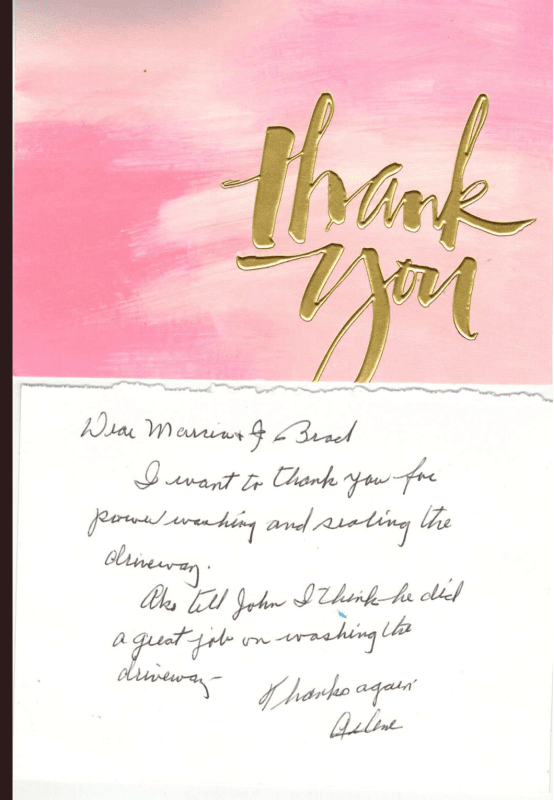 thank
you
Dear Marcia & J Brad
I want to thank you for
power washing and sealing the
driveway.
Also tell John I think he did
a great job on washing the
driveway
Thanks again
Arlene